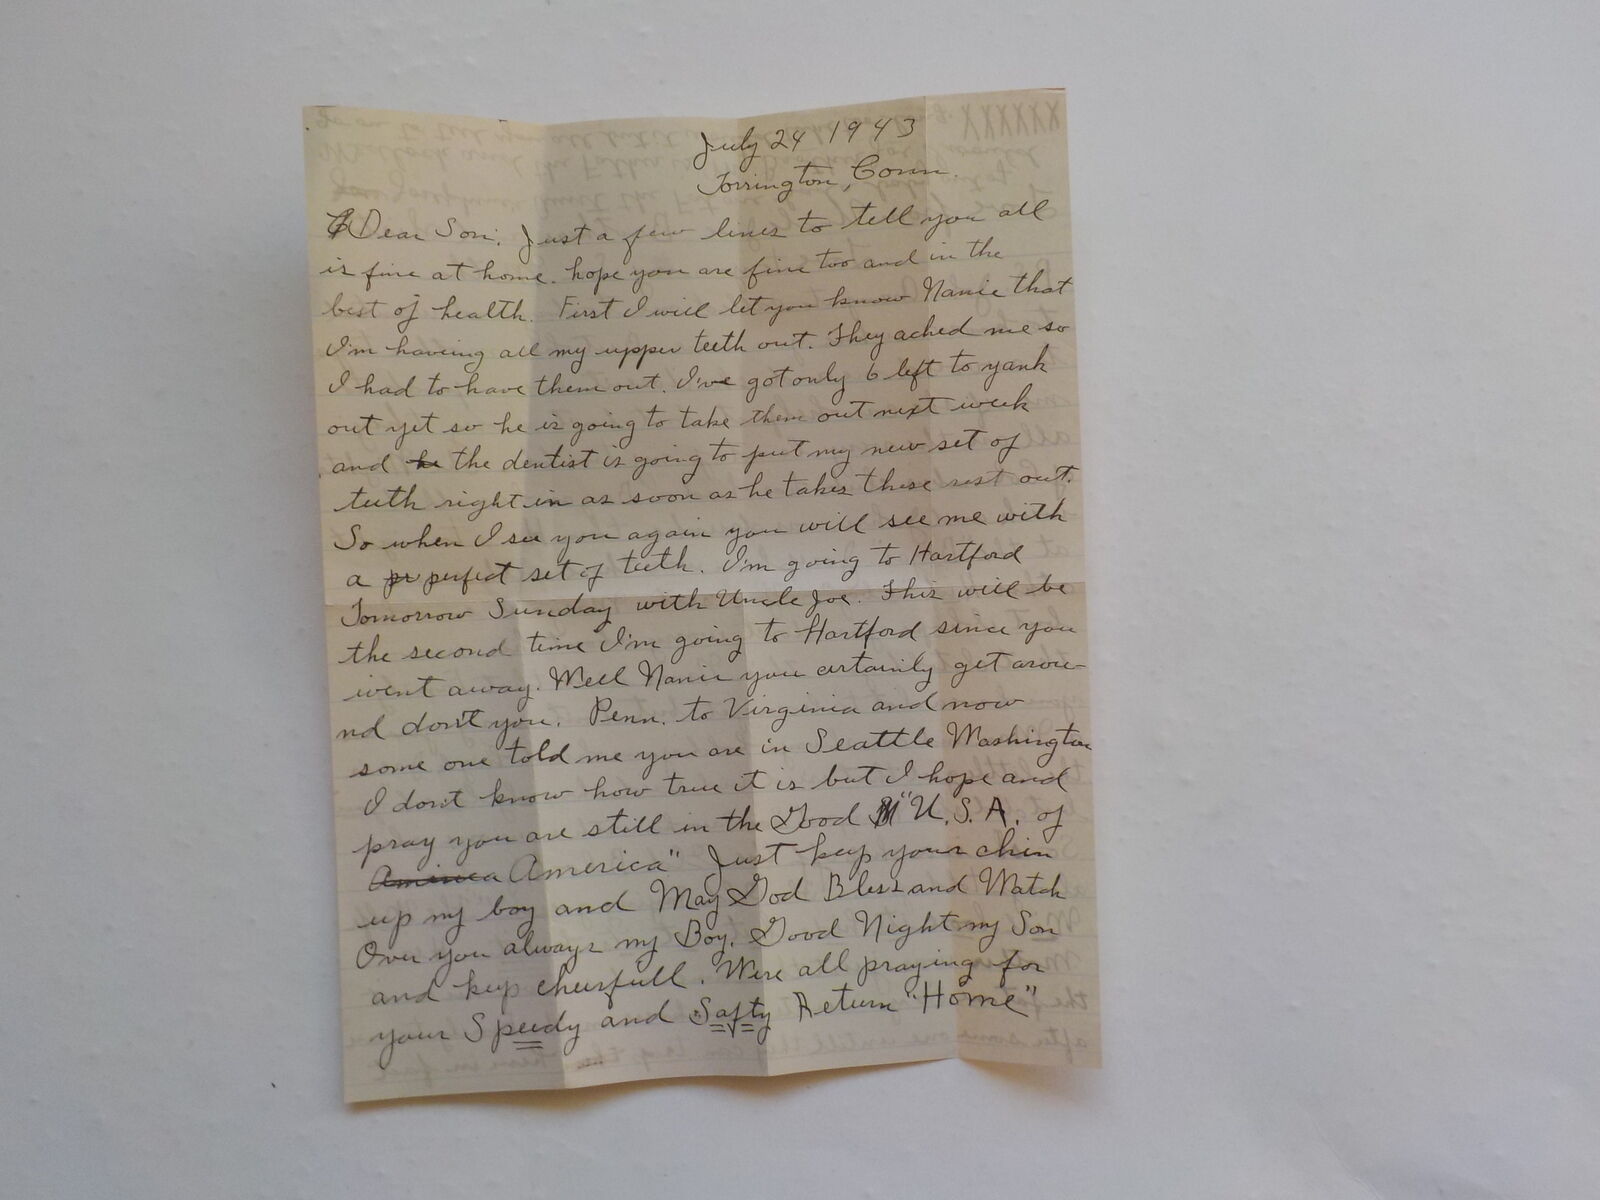 July 24 1943
Torrington, Conn.
Dear Son, Just a few lines to tell you all
is fine at home. hope you are fine too and in the
best of health. First I will let you know Nanie that
I'm having all my upper teeth out. They ached me so
I had to have them out. I've got only 6 left to yank
out yet so he is going to take them out next week
and he the dentist is going to put my new set of
teeth right in as soon as he takes these rest out.
So when I see you again you will see me with
a pr perfect set of teeth. I'm going to Hartford
Tomorrow Sunday with Uncle Joe. This will be
the second time I'm going to Hartford since you
went away. Well Nanie you certainly get arou-
nd don't you. Penn. to Virginia and now
some one told me you are in Seattle Washington
I don't know how true it is but I hope and
pray you are still in the Good "U.S.A. of
America America" Just keep your chin
up my boy and May God Bless and Watch
Over you always my Boy. Good Night my Son
and keep cheerfull. Were all praying for
your Speedy and Safty Return "Home"